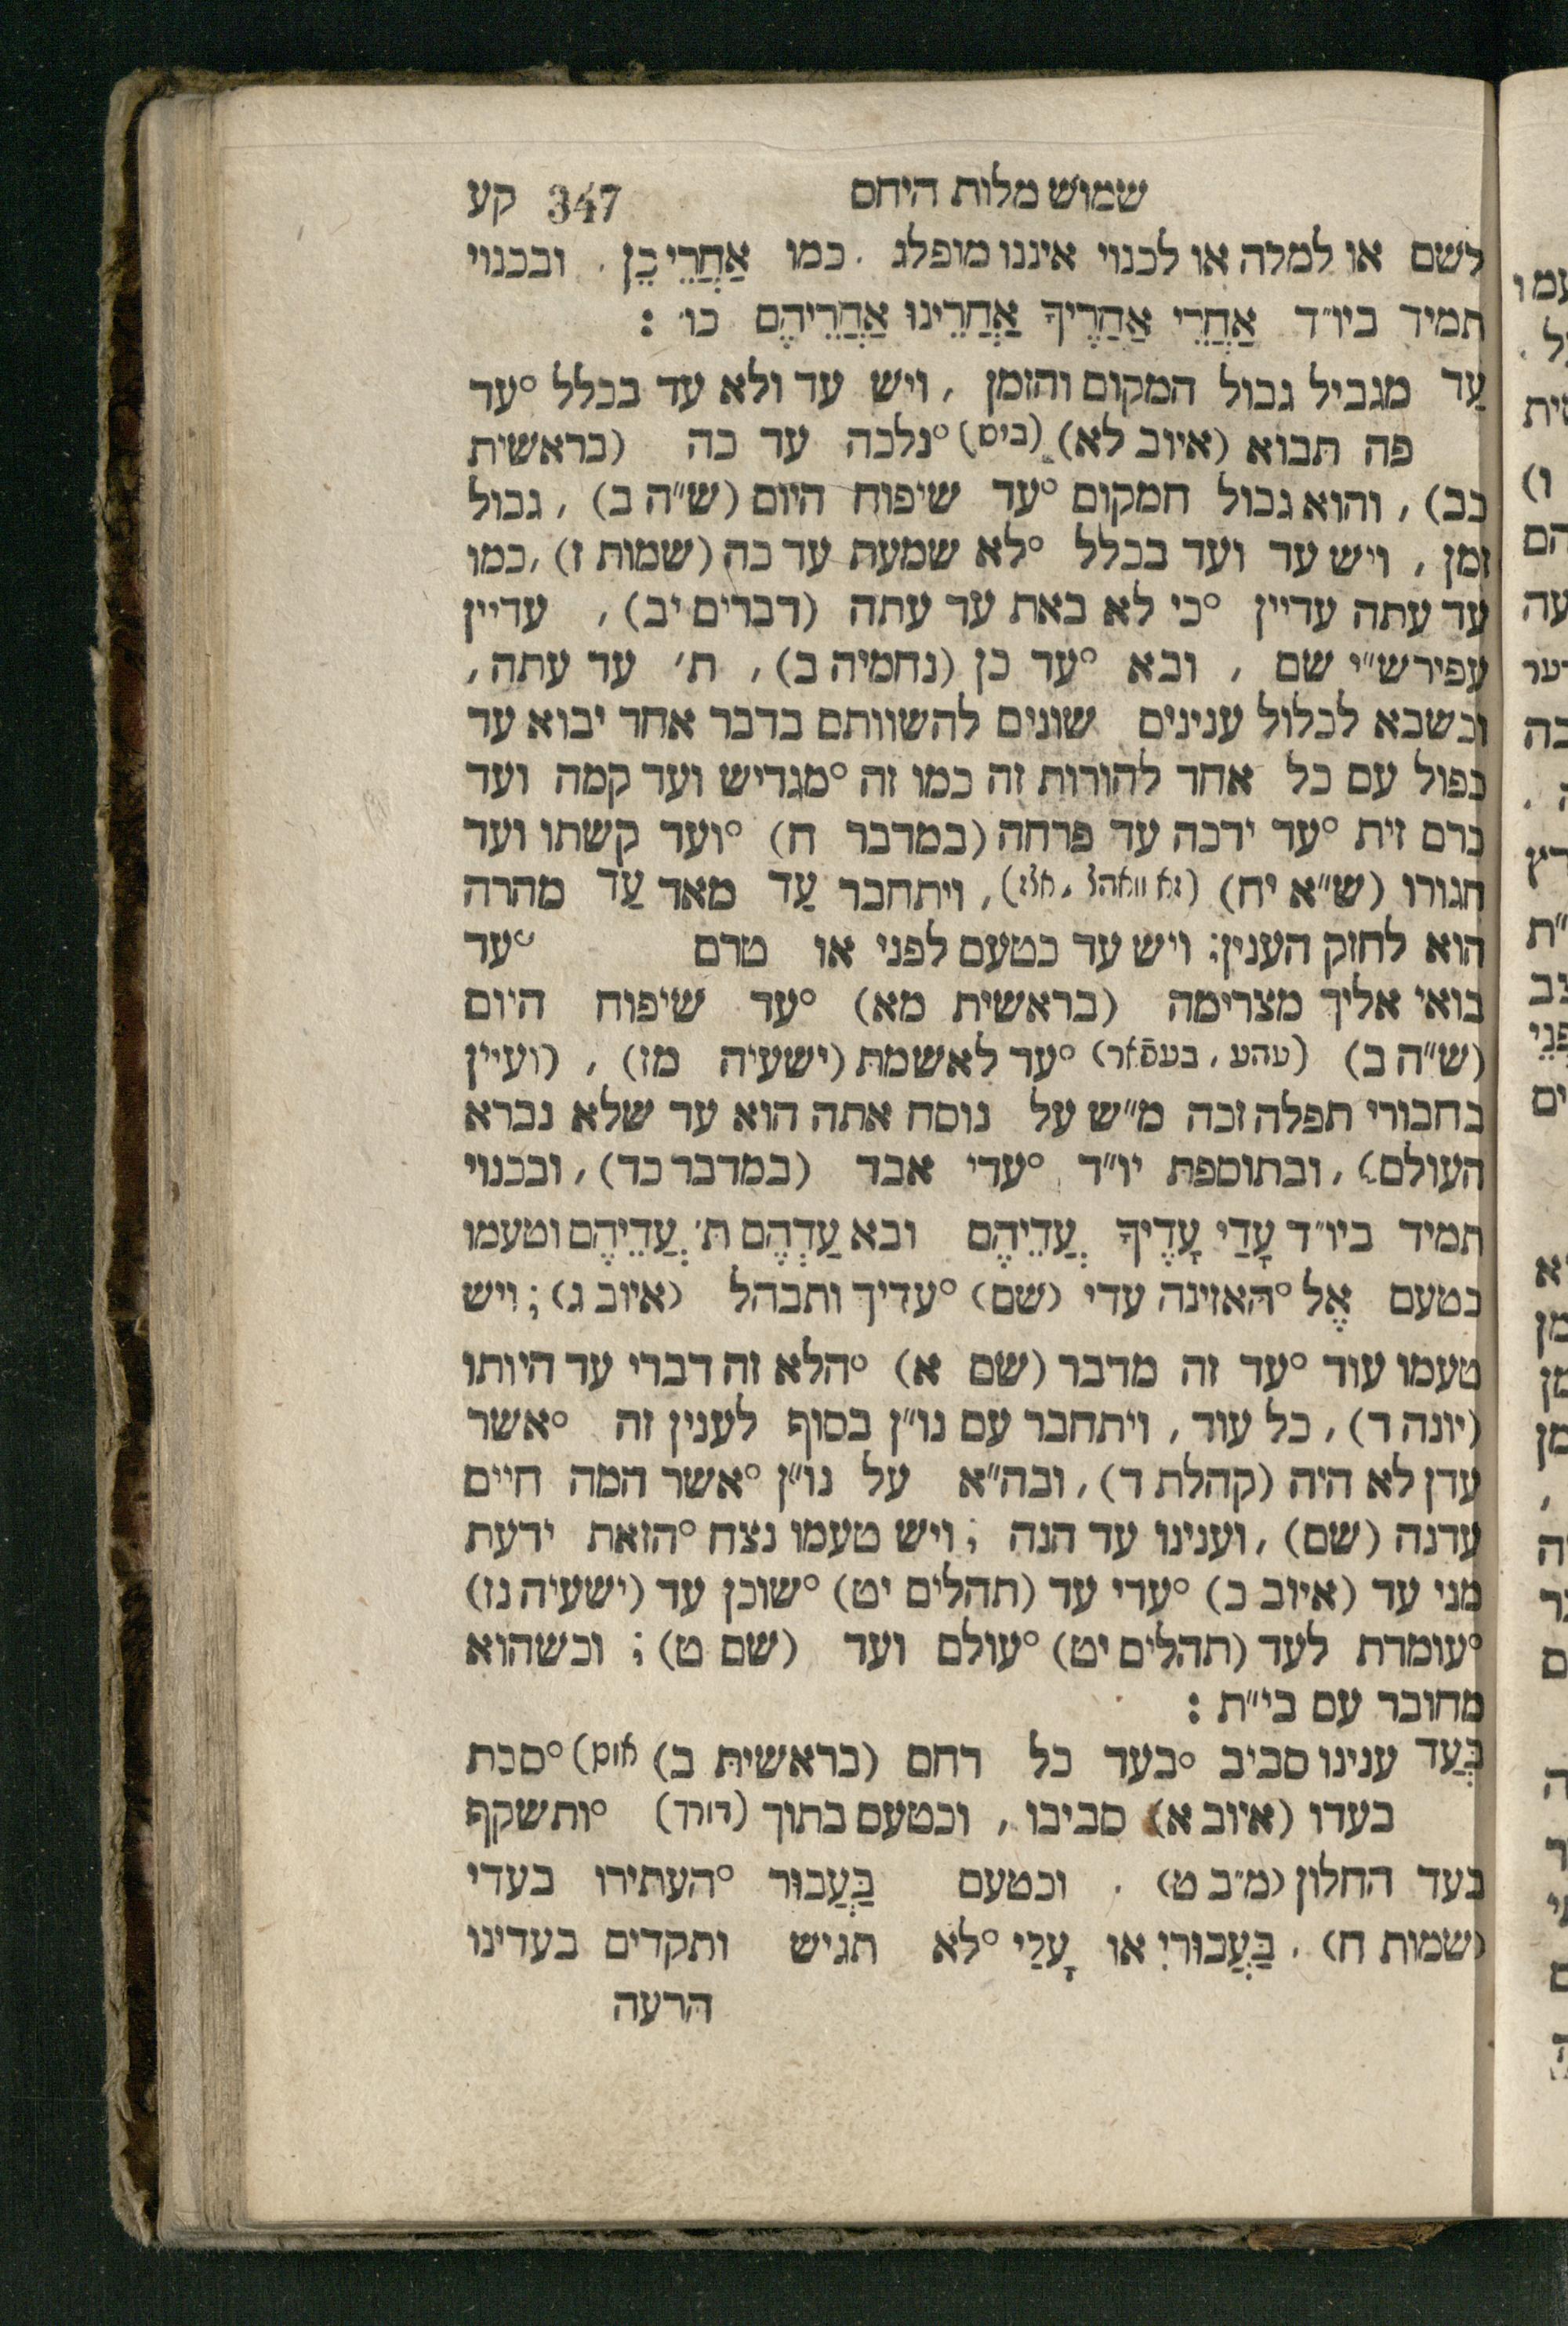 שמוש מלות היחס 347 קע
לשם או למלה או לכנוי איננו מופלג . כמו אַחֲרֵי כֵן . ובכנוי
תמיד ביו"ד אַחֲרֵי אַחֲרֶיךָ אַחֲרֵינוּ אַחֲרֵיהֶם כו' :
עַד מגביל גבול המקום והזמן , ויש עד ולא עד בכלל °עד
פה תבוא (איוב לא) (ביס) °נלכה עד כה (בראשית
כב) , והוא גבול המקום °עד שיפוח היום (ש"ה ב) , גבול
זמן , ויש עד ועד בכלל °לא שמעת עד כה (שמות ז) , כמו
עד עתה עדיין °כי לא באת עד עתה (דברים יב) , עדיין
עפירש"י שם , ובא °עד כן (נחמיה ב) , ת' עד עתה ,
וכשבא לכלול ענינים שונים להשוותם בדבר אחד יבוא עד
כפול עם כל אחד להורות זה כמו זה °מגדיש ועד קמה ועד
כרם זית °עד ירכה עד פרחה (במדבר ח) °ועד קשתו ועד
חגורו (ש"א יח) (זא וואהל , אלז) , ויתחבר עַד מאד עַד מהרה
הוא לחזק הענין: ויש עד כטעם לפני או טרם °עד
בואי אליך מצרימה (בראשית מא) °עד שיפוח היום
(ש"ה ב) (עהע , בעפֿאר) °עד לאשמת (ישעיה מז) , (ועיין
בחבורי תפלה זכה מ"ש על נוסח אתה הוא עד שלא נברא
העולם) , ובתוספת יו"ד °עדי אבד (במדבר כד) , ובכנוי
תמיד ביו"ד עָדַי עָדֶיךָ עֲדֵיהֶם ובא עַדְהֶם ת' עֲדֵיהֶם וטעמו
כטעם אֶל °האזינה עדי (שם) °עדיך ותבהל (איוב ג) ; ויש
טעמו עוד °עד זה מדבר (שם א) °הלא זה דברי עד היותו
(יונה ד) , כל עוד , ויתחבר עם נו"ן בסוף לענין זה °אשר
עדן לא היה (קהלת ד) , ובה"א על נו"ן °אשר המה חיים
עדנה (שם) , וענינו עד הנה ; ויש טעמו נצח °הזאת ידעת
מני עד (איוב כ) °עדי עד (תהלים יט) °שוכן עד (ישעיה נז)
°עומדת לעד (תהלים יט) °עולם ועד (שם ט) ; וכשהוא
מחובר עם בי"ת :
בְּעַד ענינו סביב °בעד כל רחם (בראשית ב) אום) °סכת
בעדו (איוב א) סביבו , וכטעם בתוך (דורך) °ותשקף
בעד החלון (מ"ב ט) . וכטעם בַּעֲבוּר °העתירו בעדי
(שמות ח) . בַּעֲבוּרִי או עָלַי °לא תגיש ותקדים בעדינו
הרעה